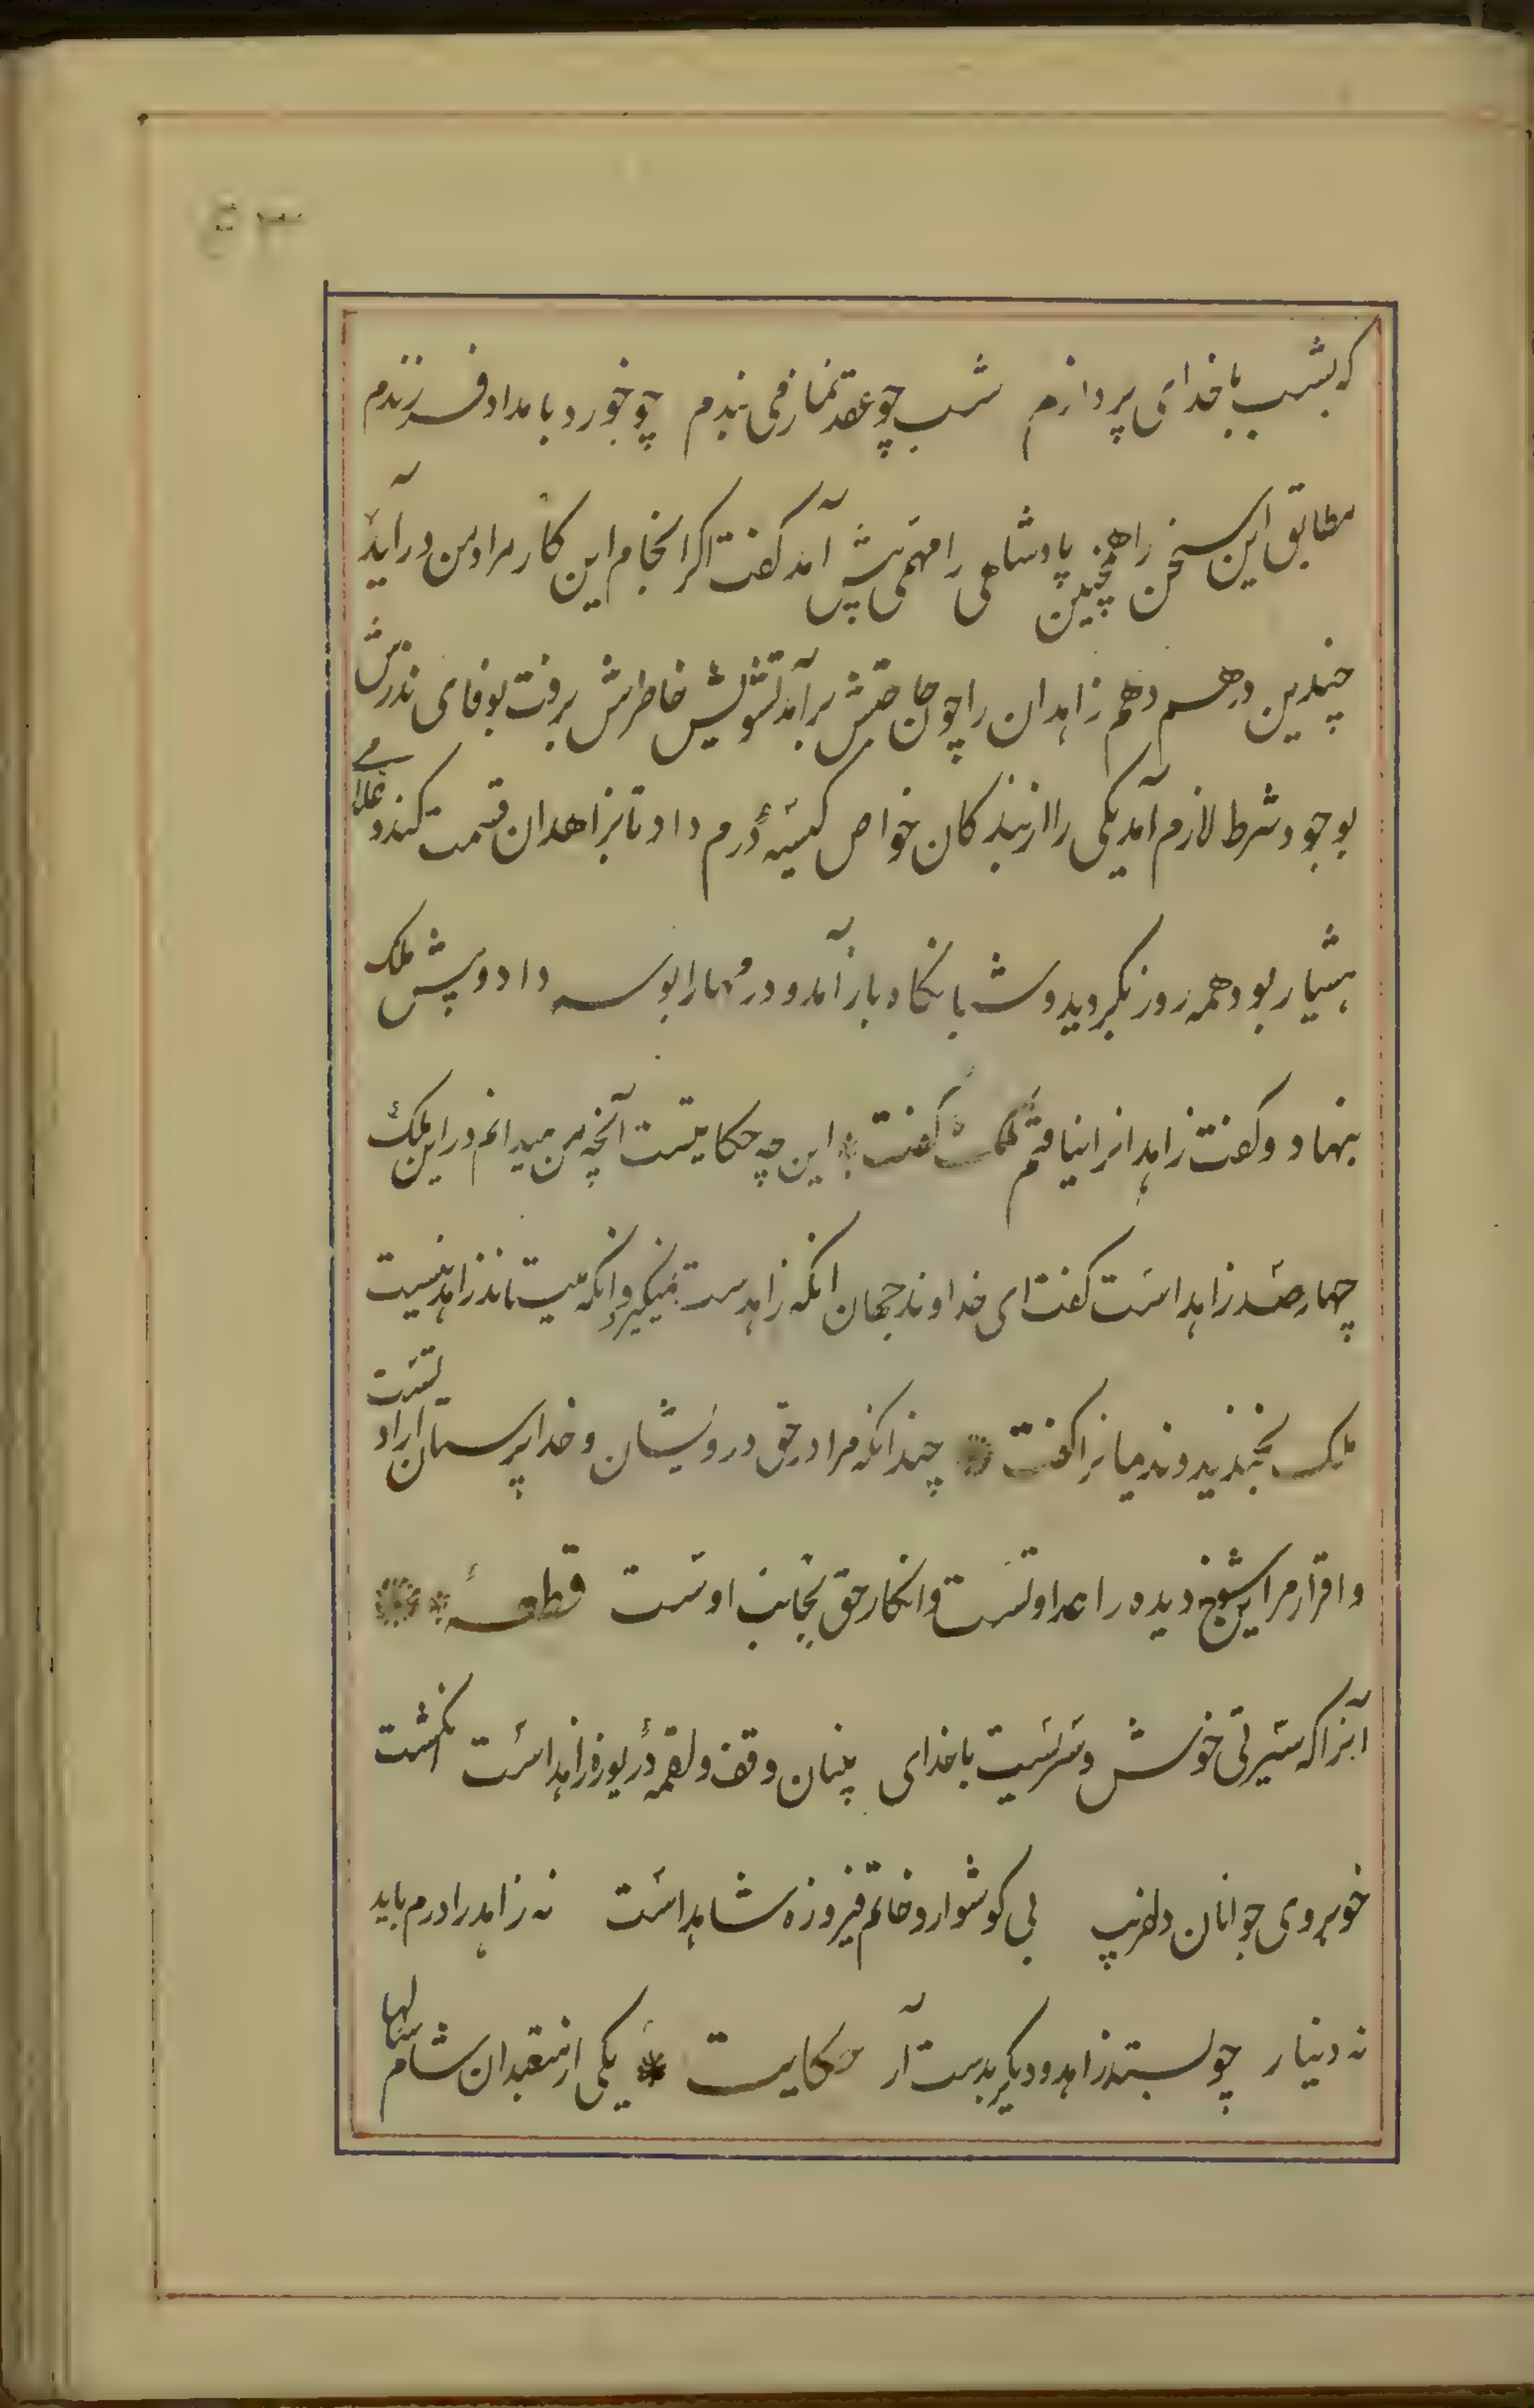 ۵۳
که بشب با خدای پردازم شب چو عقد نماز می بندم چو خورد بامداد فرزندم
مطابق این سخن را همچنین پادشاهی را مهمی پیش آمد کفت اکر انجام این کار مراد من در آید
چندین درهم دهم زاهدان را چون حاجتش برآمد تشویش خاطرش برفت بوفای نذرش
بوجود شرط لازم آمد یکی را از بندکان خواص کیسهٔ درم داد تا بزاهدان قسمت کند و غلامی
هشیار بود همه روز بکردید و شبانکاه باز آمد و درمها را بوسه داد و پیش ملک
بنهاد و کفت زاهدانرا نیافتم ملک کفت این چه حکایتست آنچه من میدانم در این ملک
چهارصد زاهد است کفت ای خداوند جهان انکه زاهدست نمیکیرد و انکه میستاند زاهد نیست
ملک بخندید و ندیمانرا کفت چندانکه مرا در حق درویشان و خداپرستان ارادتست
و اقرار مر این شوخ دیده را عداوتست و انکار حق بجانب اوست قطعه
آنرا که سیرتی خوش و سریست با خدای بینان وقف و لقمهٔ دریوزه زاهد است انکشت
خوبروی جوانان دلفریب بی کوشوار و خاتم فیروزه شاهد است نه زاهد را درم باید
نه دینار چو بستد زاهد و دیکر بدست آر حکایت یکی از متعبدان شام سالها